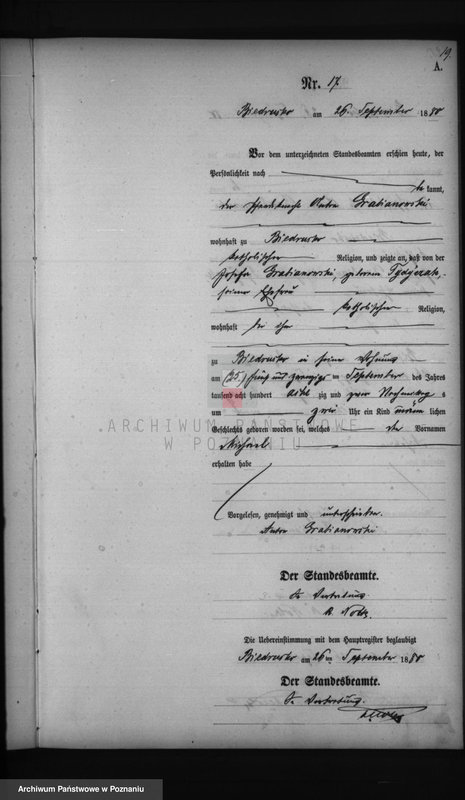 19.
A.
Nr. 17.
Biedrusko am 26. September 1880
Vor dem unterzeichneten Standesbeamten erschien heute, der
Persönlichkeit nach
be kannt,
der Pferdeknecht Anton Grabianowski
wohnhaft zu Biedrusko
katholischer Religion, und zeigte an, daß von der
Josefa Grabianowski, geborene
seiner Ehefrau
katholischer Religion,
wohnhaft bei ihm
zu Biedrusko in seiner Wohnung
am (25.) fünf und zwanzigsten September des Jahres
tausend acht hundert acht zig und zwar Nachmittag s
um zwei Uhr ein Kind männ lichen
Geschlechts geboren worden sei, welches den Vornamen
Michael
erhalten habe
Vorgelesen, genehmigt und unterschrieben.
Anton Grabianowski
Der Standesbeamte.
In Vertretung
Die Uebereinstimmung mit dem Hauptregister beglaubigt
Biedrusko am 26 ten September 1880
Der Standesbeamte.
In Vertretung.
ARCHIWUM PAŃSTWOWE
W POZNANIU
Archiwum Państwowe w Poznaniu